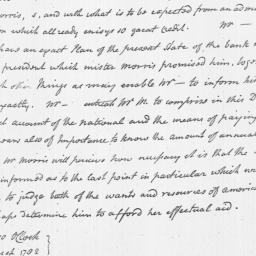 orris, s, and with what is to be expected from an adm
on which allready enioys so great credit. Wr —
have an exact Plan of the present State of the bank
president which mister Morris promised him,
such other Things as may enable Wr — to inform his
Wr — wishes Mr M. to comprise in this D
ct account of the national and the means of paying
was also of Importance to know the amount of annual
Wr Morris will perceive how necessary it is that the
informed as to the last point in particular which w
to judge both of the wants and resources of america
haps determine him to afford her effectual aid.
o'Clock
rch 1782